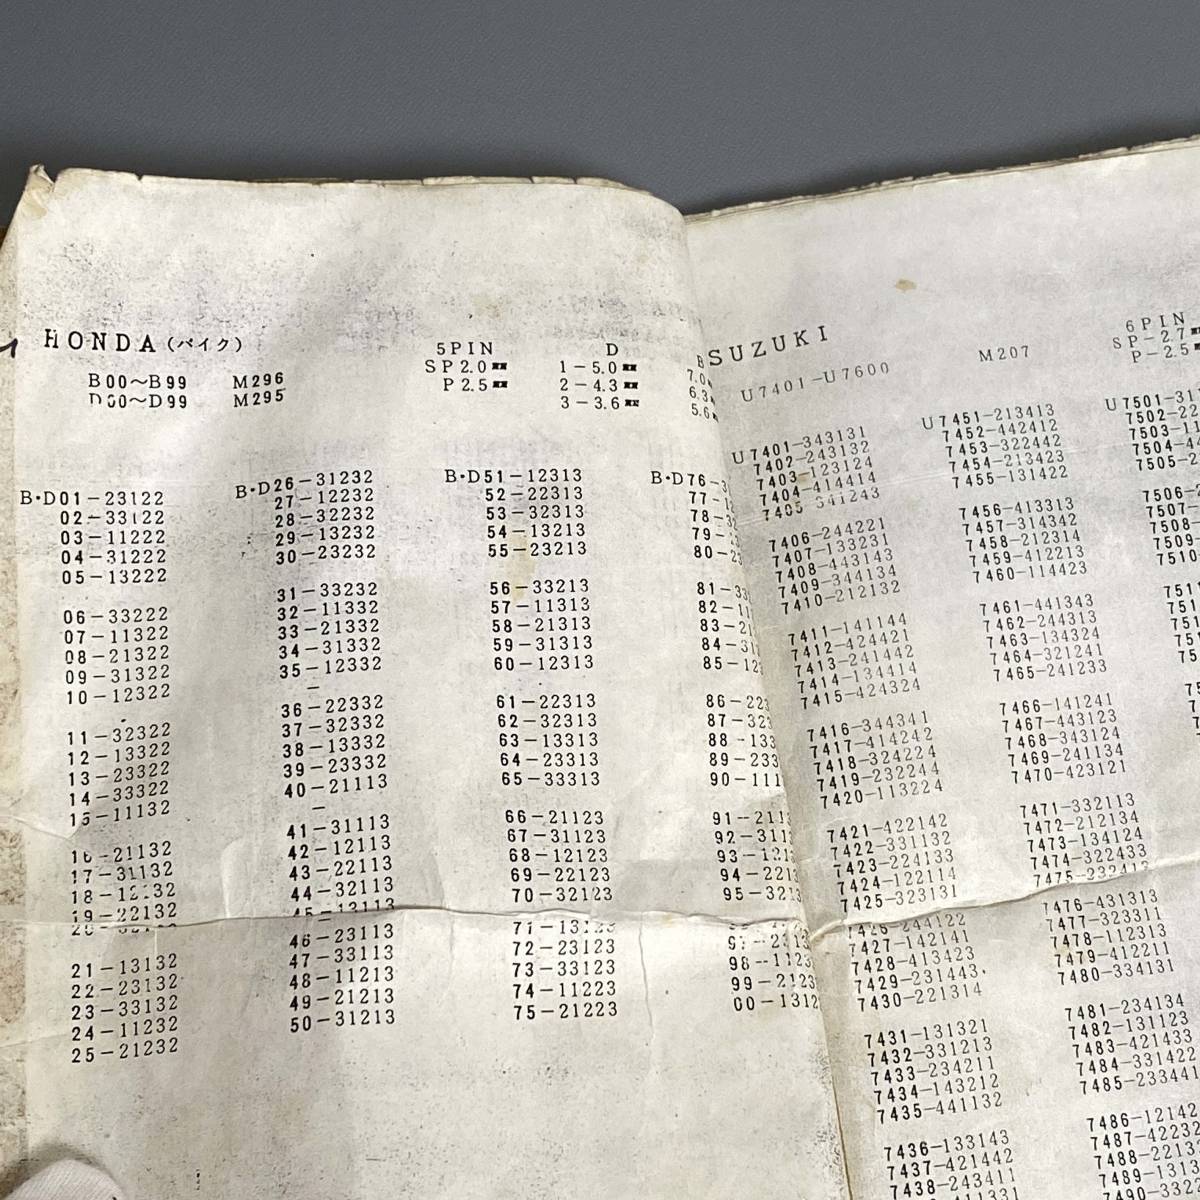 HONDA (バイク)
B00～B99 M296
D00～D99 M295
5PIN
SP2.0㎜
P2.5㎜
D
1-5.0㎜
2-4.3㎜
3-3.6㎜
B
7.0
6.3
5.6
B･D01-23122
02-33122
03-11222
04-31222
05-13222
06-33222
07-11322
08-21322
09-31322
10-12322
11-32322
12-13322
13-23322
14-33322
15-11132
16-21132
17-31132
18-12132
19-22132
21-13132
22-23132
23-33132
24-11232
25-21232
B･D26-31232
27-12232
28-32232
29-13232
30-23232
31-33232
32-11332
33-21332
34-31332
35-12332
36-22332
37-32332
38-13332
39-23332
40-21113
41-31113
42-12113
43-22113
44-32113
45-13113
46-23113
47-33113
48-11213
49-21213
50-31213
B･D51-12313
52-22313
53-32313
54-13213
55-23213
56-33213
57-11313
58-21313
59-31313
60-12313
61-22313
62-32313
63-13313
64-23313
65-33313
66-21123
67-31123
68-12123
69-22123
70-32123
71-13123
72-23123
73-33123
74-11223
75-21223
B･D76-3
77-1
78-32
79-
80-23
81-33
82-11
83-21
84-31
85-12
86-223
87-323
88-133
89-233
90-111
91-2113
92-311
93-121
94-2213
95-3213
98-1123
99-2123
00-1312
SUZUKI
U7401-U7600
M207
6PIN
SP-2.7㎜
P-2.5㎜
U7401-343131
7402-243132
7403-123124
7404-414414
7405-341243
7406-244221
7407-133231
7408-443143
7409-344134
7410-212132
7411-141144
7412-424421
7413-241442
7414-134414
7415-424324
7416-344341
7417-414242
7418-324224
7419-232244
7420-113224
7421-422142
7422-331132
7423-224133
7424-122114
7425-323131
7426-244122
7427-142141
7428-413423
7429-231443
7430-221314
7431-131321
7432-331213
7433-234211
7434-143212
7435-441132
7436-133143
7437-421442
7438-243411
U7451-213413
7452-442412
7453-322442
7454-213423
7455-131422
7456-413313
7457-314342
7458-212314
7459-412213
7460-114423
7461-441343
7462-244313
7463-134324
7464-321241
7465-241233
7466-141241
7467-443123
7468-343124
7469-241134
7470-423121
7471-332113
7472-212134
7473-134124
7474-322433
7475-232413
7476-431313
7477-323311
7478-112313
7479-412211
7480-334131
7481-234134
7482-131123
7483-421433
7484-331422
7485-233441
7486-12142
7487-42232
7488-22133
7489-1313
7490-3322
U7501-311
7502-22
7503-11
7504-44
7505-2
7506-2
7507-
7508-
7509-
7510-